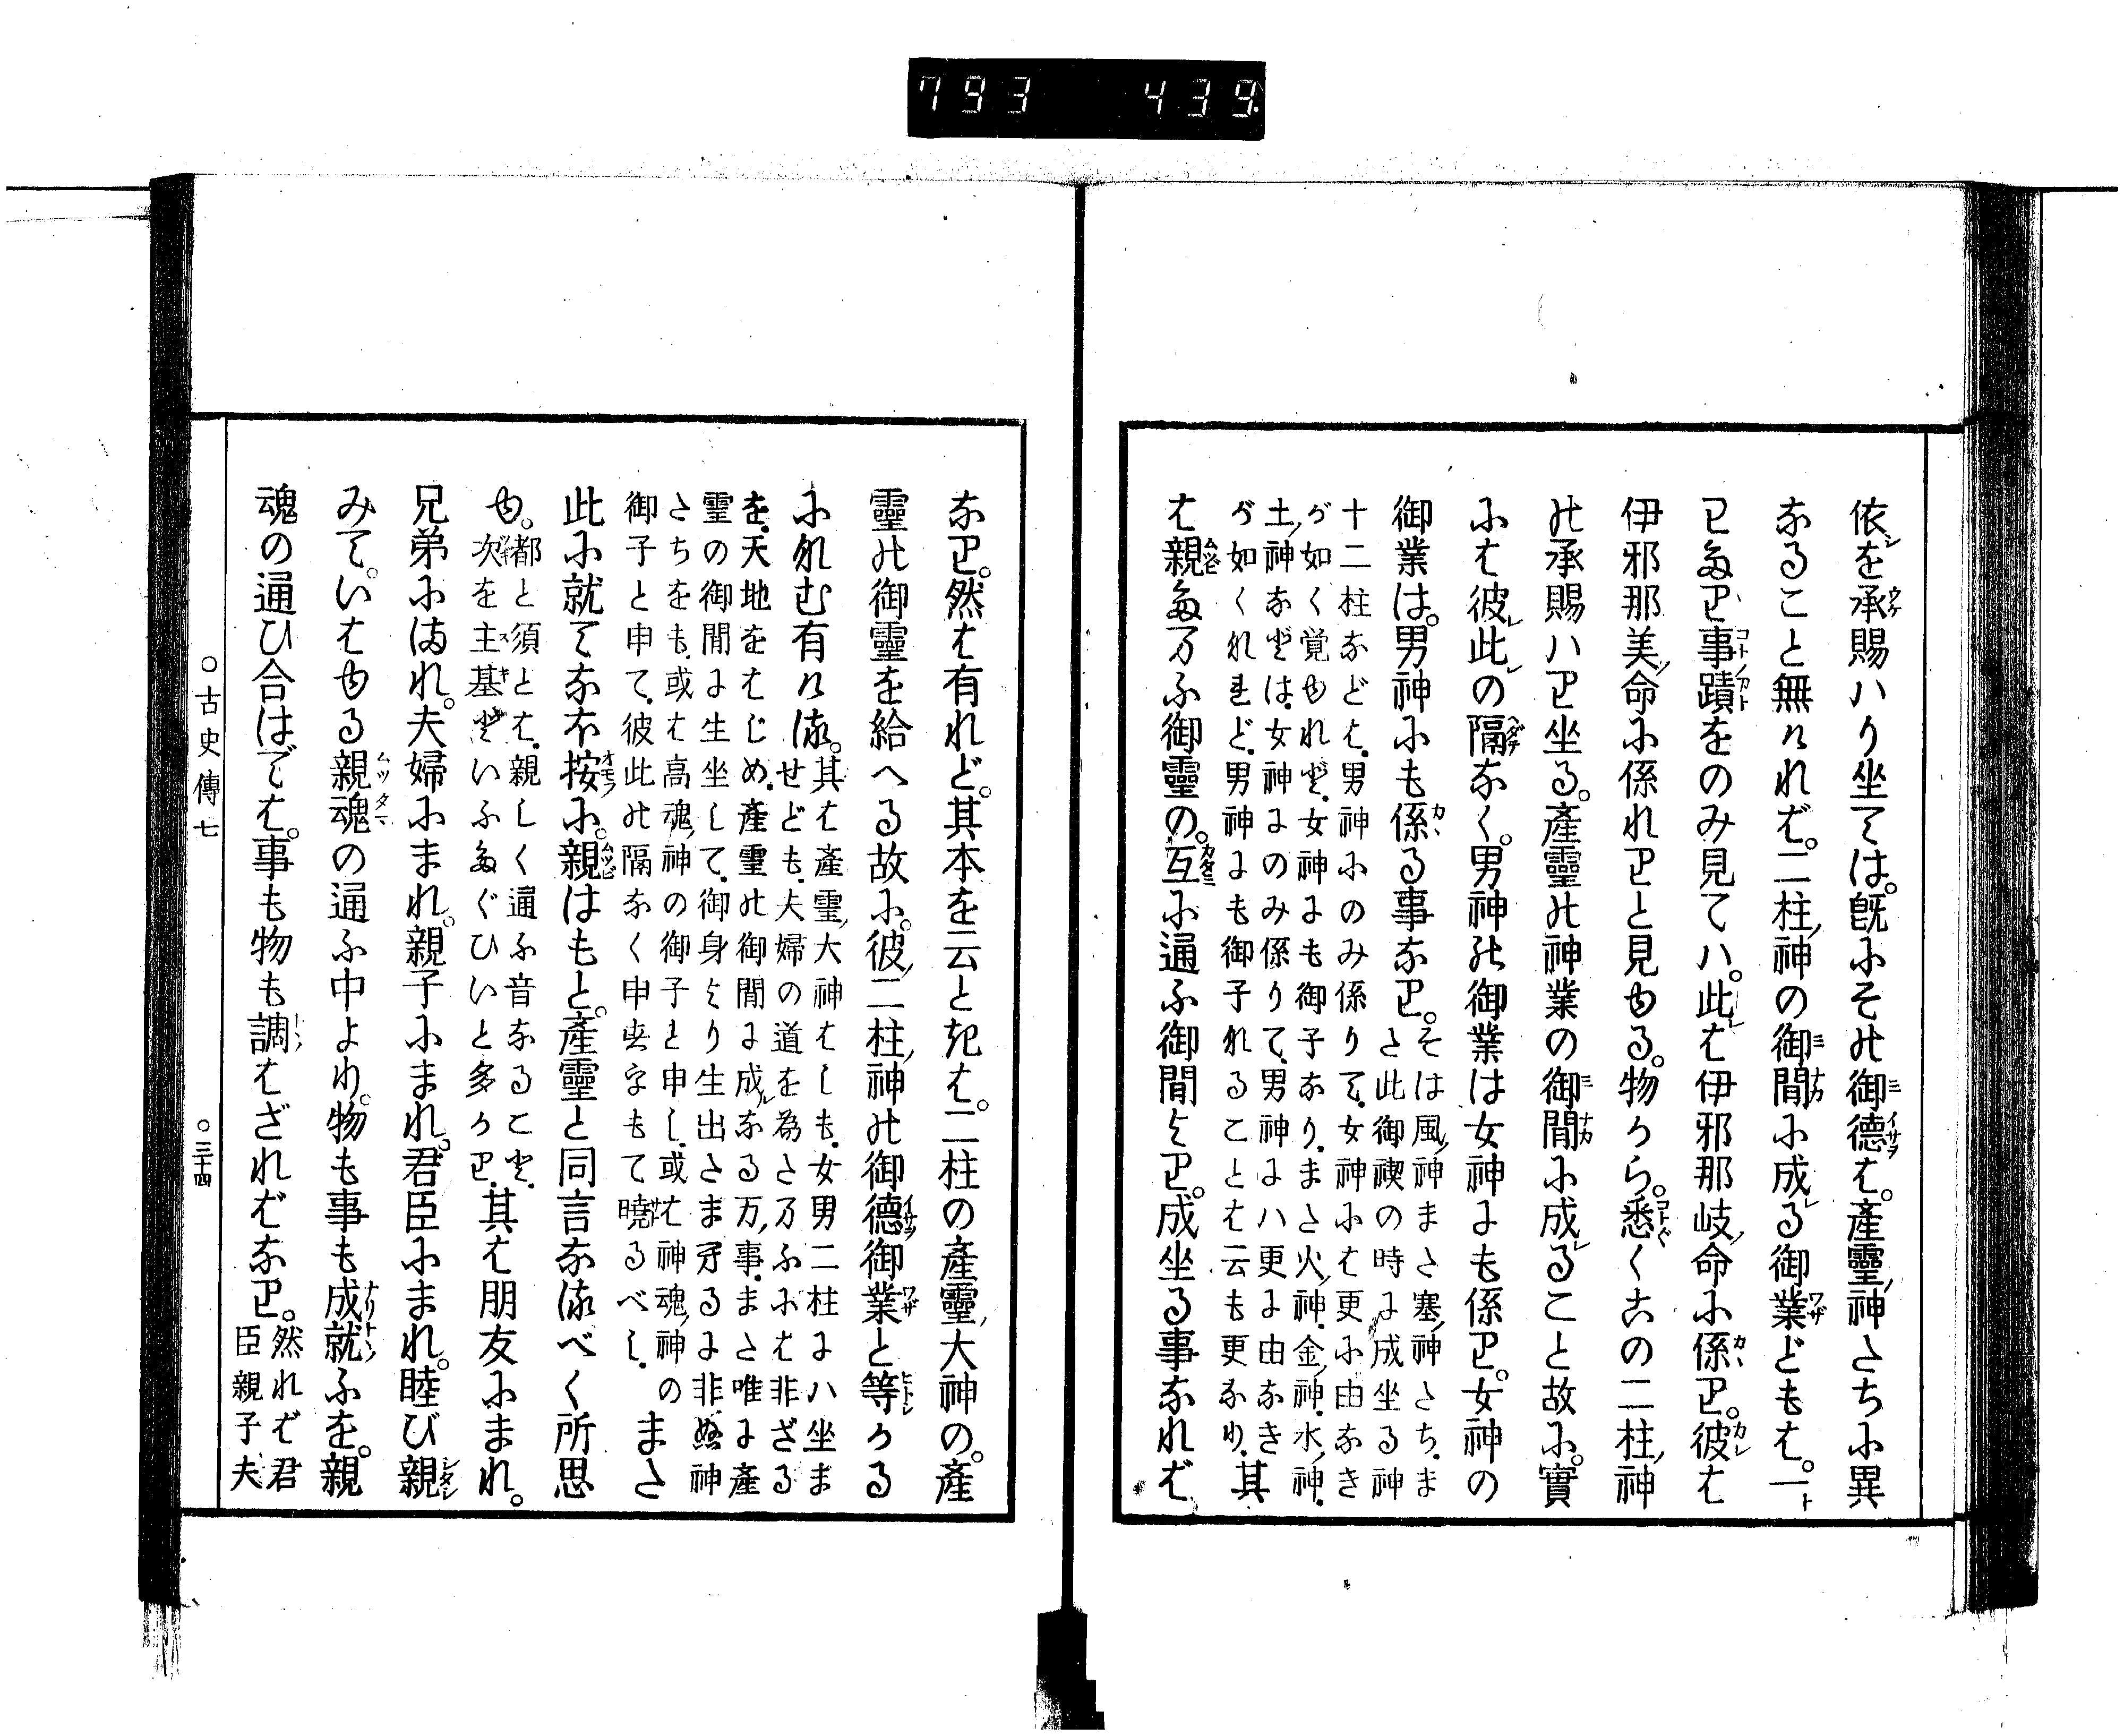 793 439
依を承賜ハり坐ては。既にその御德は。產靈神たちに異
なること無ければ。二柱神の御間に成る御業どもは。一ト
わたり事蹟をのみ見てハ。此は伊邪那岐命に係り。彼は
伊邪那美命に係れりと見ゆる。物から。悉くこの二柱神
の承賜ハり坐る。產靈の神業の御間に成ること故に。實
には彼此の隔なく。男神の御業は女神にも係り。女神の
御業は。男神にも係る事なり。そは風神また塞神たち。ま
た此御禊の時に成坐る神
十二柱などは。男神にのみ係りて。女神には更に由なき
が如く覚ゆれど。女神にも御子なり。また火神。金神。水神。
土神などは。女神にのみ係りて。男神にハ更に由なき
が如くれど。男神にも御子れることは云も更なり。其
は親たまふ御靈の。互に通ふ御間より。成坐る事なれば
なり。然は有れど。其本を云ときは。二柱の產靈大神の。產
靈の御靈を給へる故に。彼二柱神の御德御業と等かる
にれむ有ける。其は產靈大神はしも。女男二柱にハ坐ま
せども。夫婦の道を為たまふには非ざる
を。天地をはじめ。產靈の御間に成なる万事。また唯に產
靈の御間に生坐して。御身より生出たまするに非ぬ神
たちをも。或は高魂神の御子と申し。或は神魂神の
御子と申て。彼此の隔なく申せるもて曉るべし。 また
此に就てなほ按ふに。親はもと。產靈と同言なるべく所思
ゆ。都と須とは。親しく通ふ音なること。
次を主基といふたぐひいと多かり。其は朋友にまれ。
兄弟にまれ。夫婦にまれ。親子にまれ。君臣にまれ。睦び親
みて。いはゆる親魂の通ふ中より。物も事も成就ふを。親
魂の通ひ合はでは。事も物も調はざればなり。然れば君
臣親子夫
○古史傳七 ○三十四